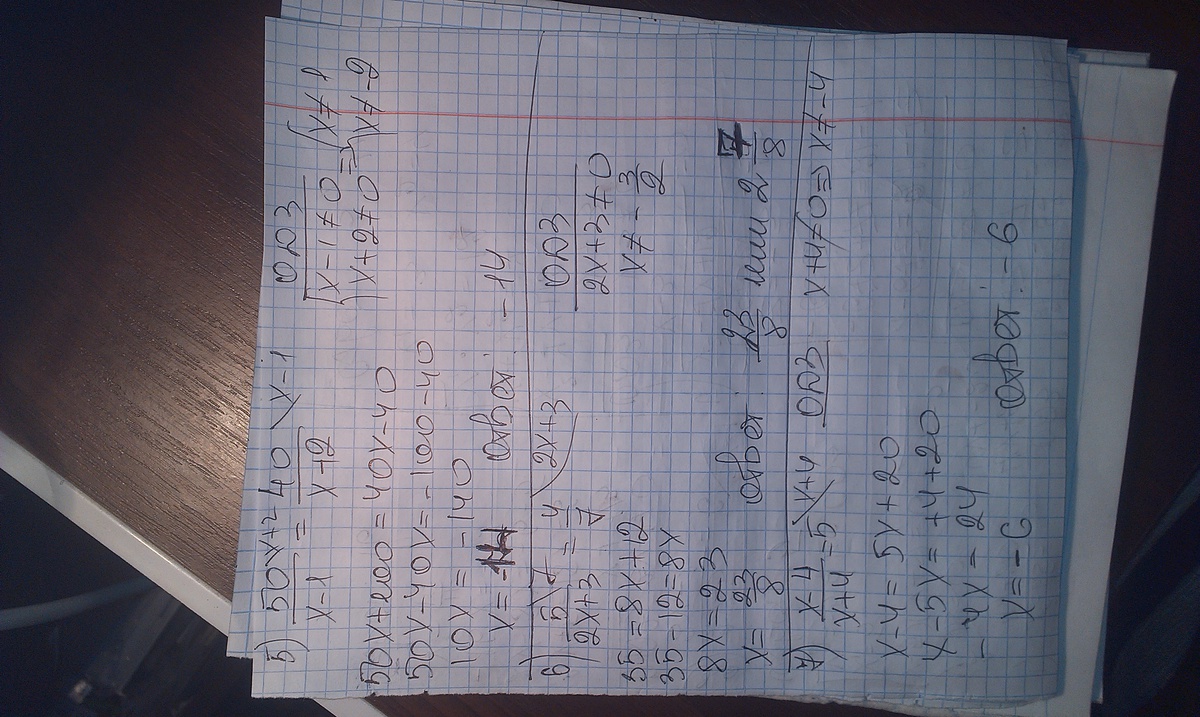 5) 50\x+2 / x-1 = 40\x-1 / x+2
ОДЗ
{x-1≠0 => {x≠1
{x+2≠0 {x≠-2
50x+100=40x-40
50x-40x=-100-40
10x=-140
x=-14
ответ: -14
6) 5\7 / 2x+3 = 4\2x+3 / 7
ОДЗ
2x+3≠0
x≠-3/2
35=8x+12
35-12=8x
8x=23
x=23/8
ответ: 23/8 или 2 7/8
x-4 / x+4 =5\x+4
ОДЗ
x+4≠0=>x≠-4
x-4=5x+20
x-5x=+4+20
-4x=24
x=-6
ответ: -6